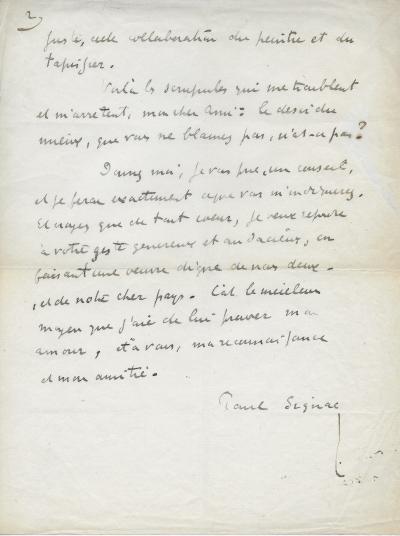 2)
juste, cette collaboration du peintre et du
tapissier.
Voilà les scrupules qui me troublent
et m'arretent, mon cher Ami : le desir du
mieux, que vous ne blamez pas, n'est-ce pas ?
Donnez moi, je vous prie, un conseil,
et je ferai exactement ce que vous m'indiquerez.
Et croyez que de tout coeur, je veux repondre
à votre geste genereux et audacieux, en
faisant une oeuvre digne de nous deux -
et de notre cher pays. C'est le meilleur
moyen que j'aie de lui prouver mon
amour, et à vous, ma reconnaissance
et mon amitié.
Paul Signac